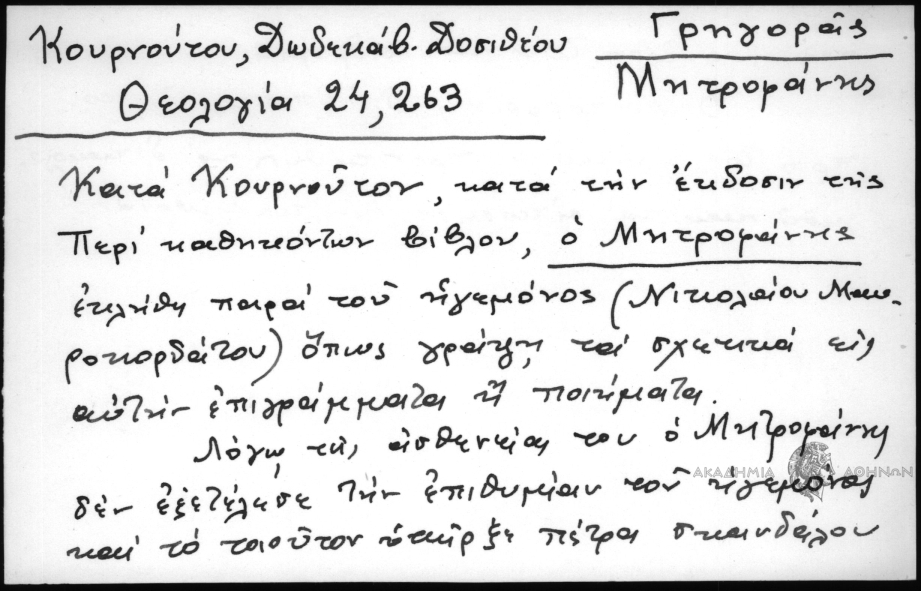 Κουρνούτου, Δωδεκάβ. Δοσιθέου
Θεολογία 24, 263
Γρηγορᾶς
Μητροφάνης
Κατά Κουρνοῦτον, κατά τήν ἔκδοσιν τῆς
Περί καθηκόντων βίβλου, ὁ Μητροφάνης
ἐκλήθη παρά τοῦ ἡγεμόνος (Νικολάου Μαυ-
ροκορδάτου) ὅπως γράψῃ τά σχετικά εἰς
αὐτήν ἐπιγράμματα ἤ ποιήματα.
Λόγῳ τῆς ἀσθενείας του ὁ Μητροφάνης
δέν ἐξετέλεσε τήν ἐπιθυμίαν τοῦ ἡγεμόνος
καί τό τοιοῦτον ὑπῆρξε πέτρα σκανδάλου
ΑΚΑΔΗΜΙΑ ΑΘΗΝΩΝ